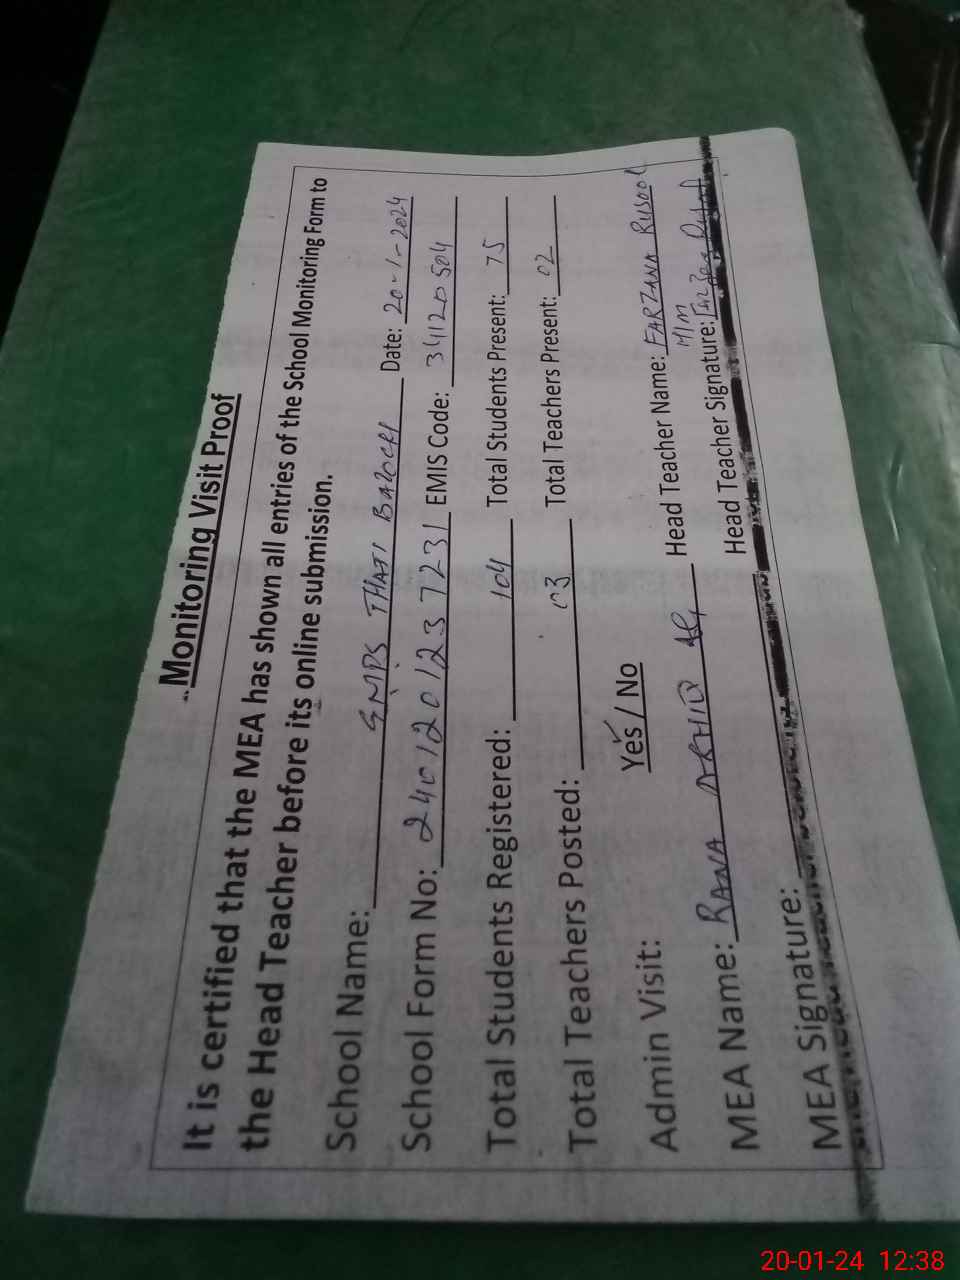 Monitoring Visit Proof
It is certified that the MEA has shown all entries of the School Monitoring Form to
the Head Teacher before its online submission.
School Name: GMPS THATI BALOCH Date: 20-1-2024
School Form No: 2401201237231 EMIS Code: 34120504
Total Students Registered: 104 Total Students Present: 75
Total Teachers Posted: 03 Total Teachers Present: 02
Admin Visit: Yes / No
MEA Name: RANA Head Teacher Name: FARZANA RUSOOL
MEA Signature: Head Teacher Signature:
20-01-24 12:38